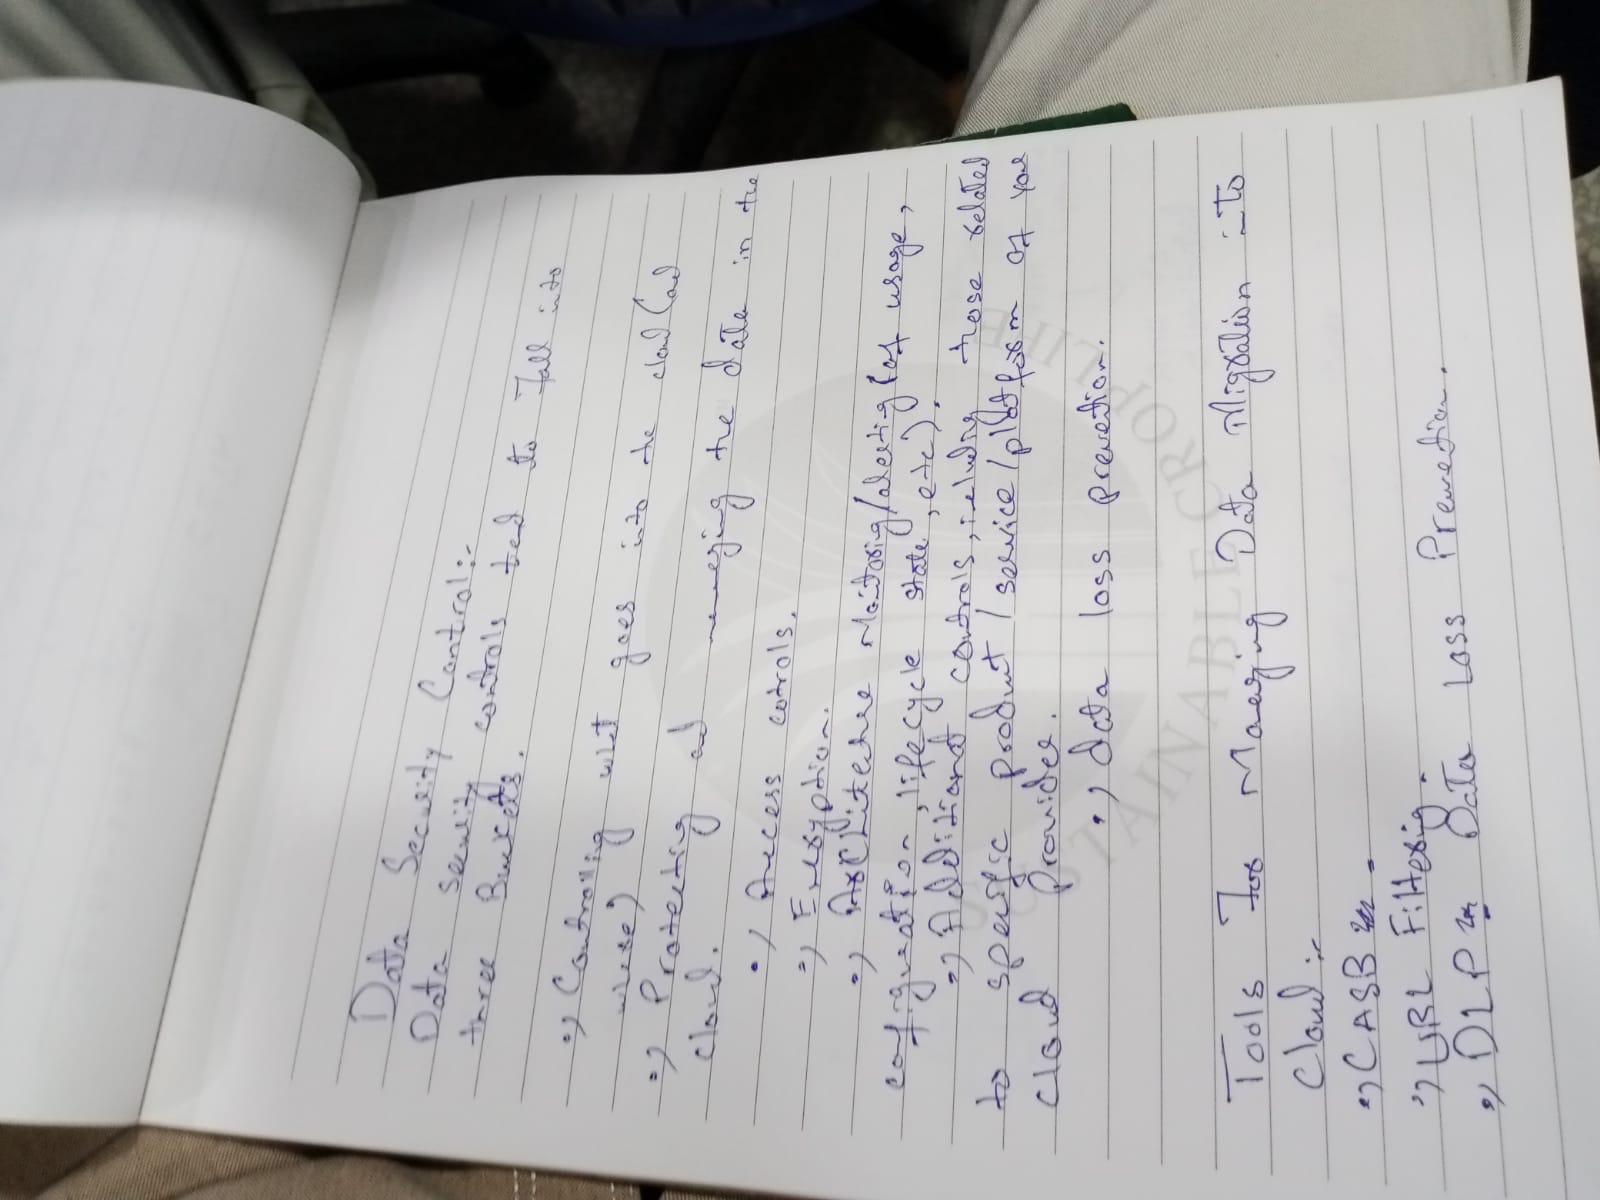 Data Security Control:-
Data security controls tend to fall into
three Buckets.
Controlling what goes into the cloud (and
where)
Protecting and managing the data in the
cloud.
Access controls.
Encryption.
Architecture Monitoring/alerting (of usage,
configuration, lifecycle state, etc).
Additional controls, including those related
to specific product / service/platform of you
cloud Provider.
data loss prevention.
Tools For Managing Data Migration into
Cloud :-
CASB
URL Filtering.
DLP Data Loss Prevention.
SUSTAINABLE CROPLIFE